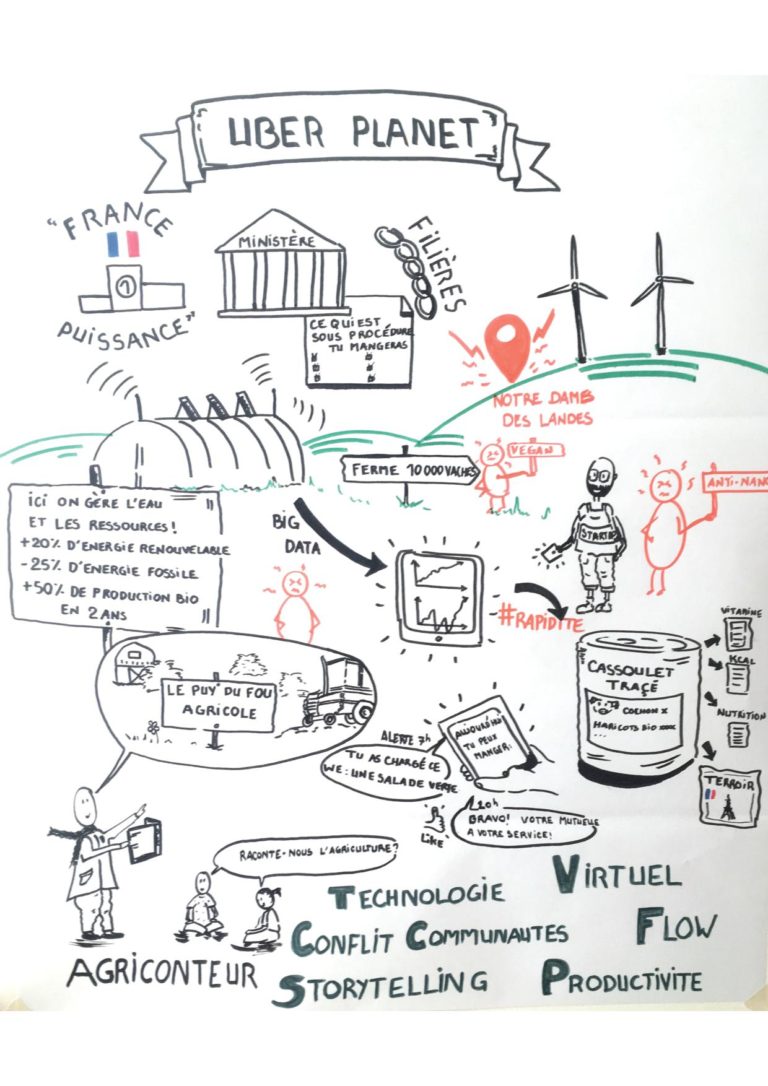 UBER PLANET
"FRANCE
PUISSANCE"
1
MINISTÈRE
FILIÈRES
CE QUI EST
SOUS PROCÉDURE
TU MANGERAS
NOTRE DAME
DES LANDES
FERME 10 000 VACHES
VEGAN
ANTI-NANO
STARTUP
ICI ON GÈRE L'EAU
ET LES RESSOURCES!
+20% D'ENERGIE RENOUVELABLE
-25% D'ENERGIE FOSSILE
+50% DE PRODUCTION BIO
EN 2 ANS
BIG
DATA
#RAPIDITE
CASSOULET
TRAÇÉ
COCHON X
HARICOTS BIO XXXX
VITAMINE
KCAL
NUTRITION
TERROIR
LE PUY DU FOU
AGRICOLE
ALERTE 7h
TU AS CHARGÉ CE
WE: UNE SALADE VERTE
AUJOURD'HUI
TU PEUX
MANGER:
LIKE
20h
BRAVO! VOTRE MUTUELLE
A VOTRE SERVICE!
RACONTE-NOUS L'AGRICULTURE?
AGRICONTEUR
TECHNOLOGIE
VIRTUEL
CONFLIT COMMUNAUTES
FLOW
STORYTELLING
PRODUCTIVITE